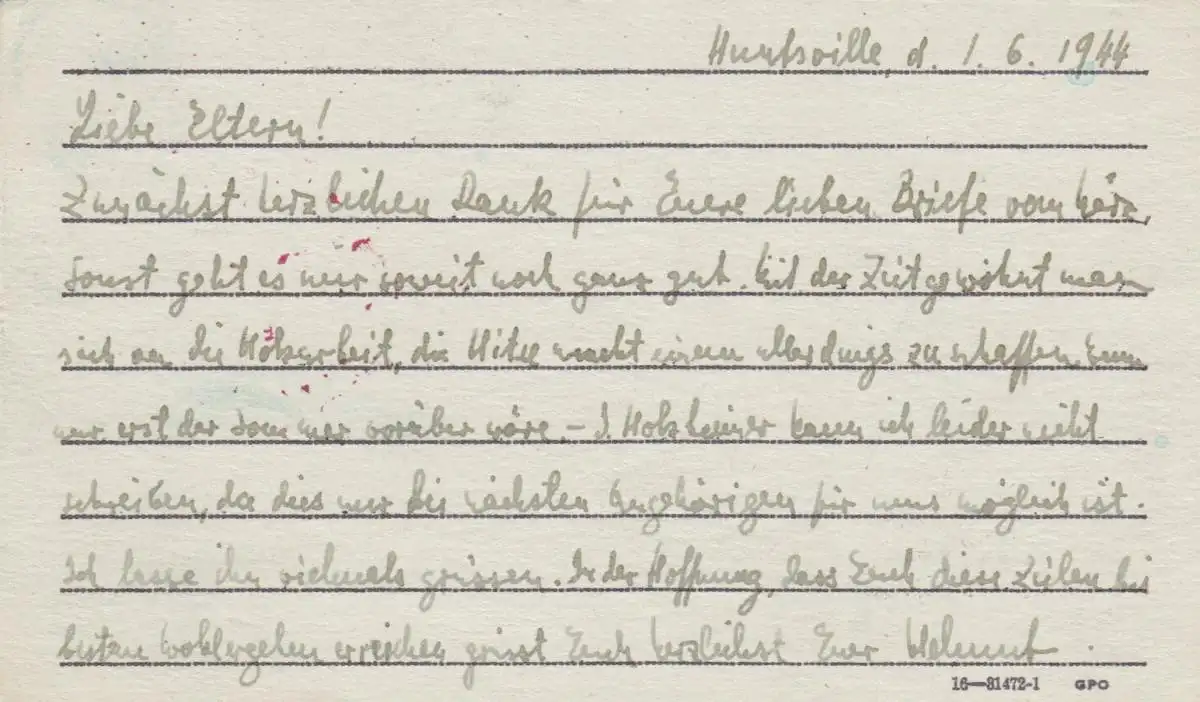 Huntsville, d. 1. 6. 1944
Liebe Eltern!
Zunächst herzlichen Dank für Euere lieben Briefe vom März.
Sonst geht es mir soweit noch ganz gut. Mit der Zeit gewöhnt man
sich an die Holzarbeit, die Hitze macht einem allerdings zu schaffen. Wenn
nur erst der Sommer vorüber wäre. – J. Holzheimer kann ich leider nicht
schreiben, da dies nur bei nächsten Angehörigen für uns möglich ist.
Ich lasse ihn vielmals grüssen. In der Hoffnung, dass Euch diese Zeilen bei
bestem Wohlergehen erreichen grüsst Euch herzlichst Euer Helmut.
16—31472-1 GPO